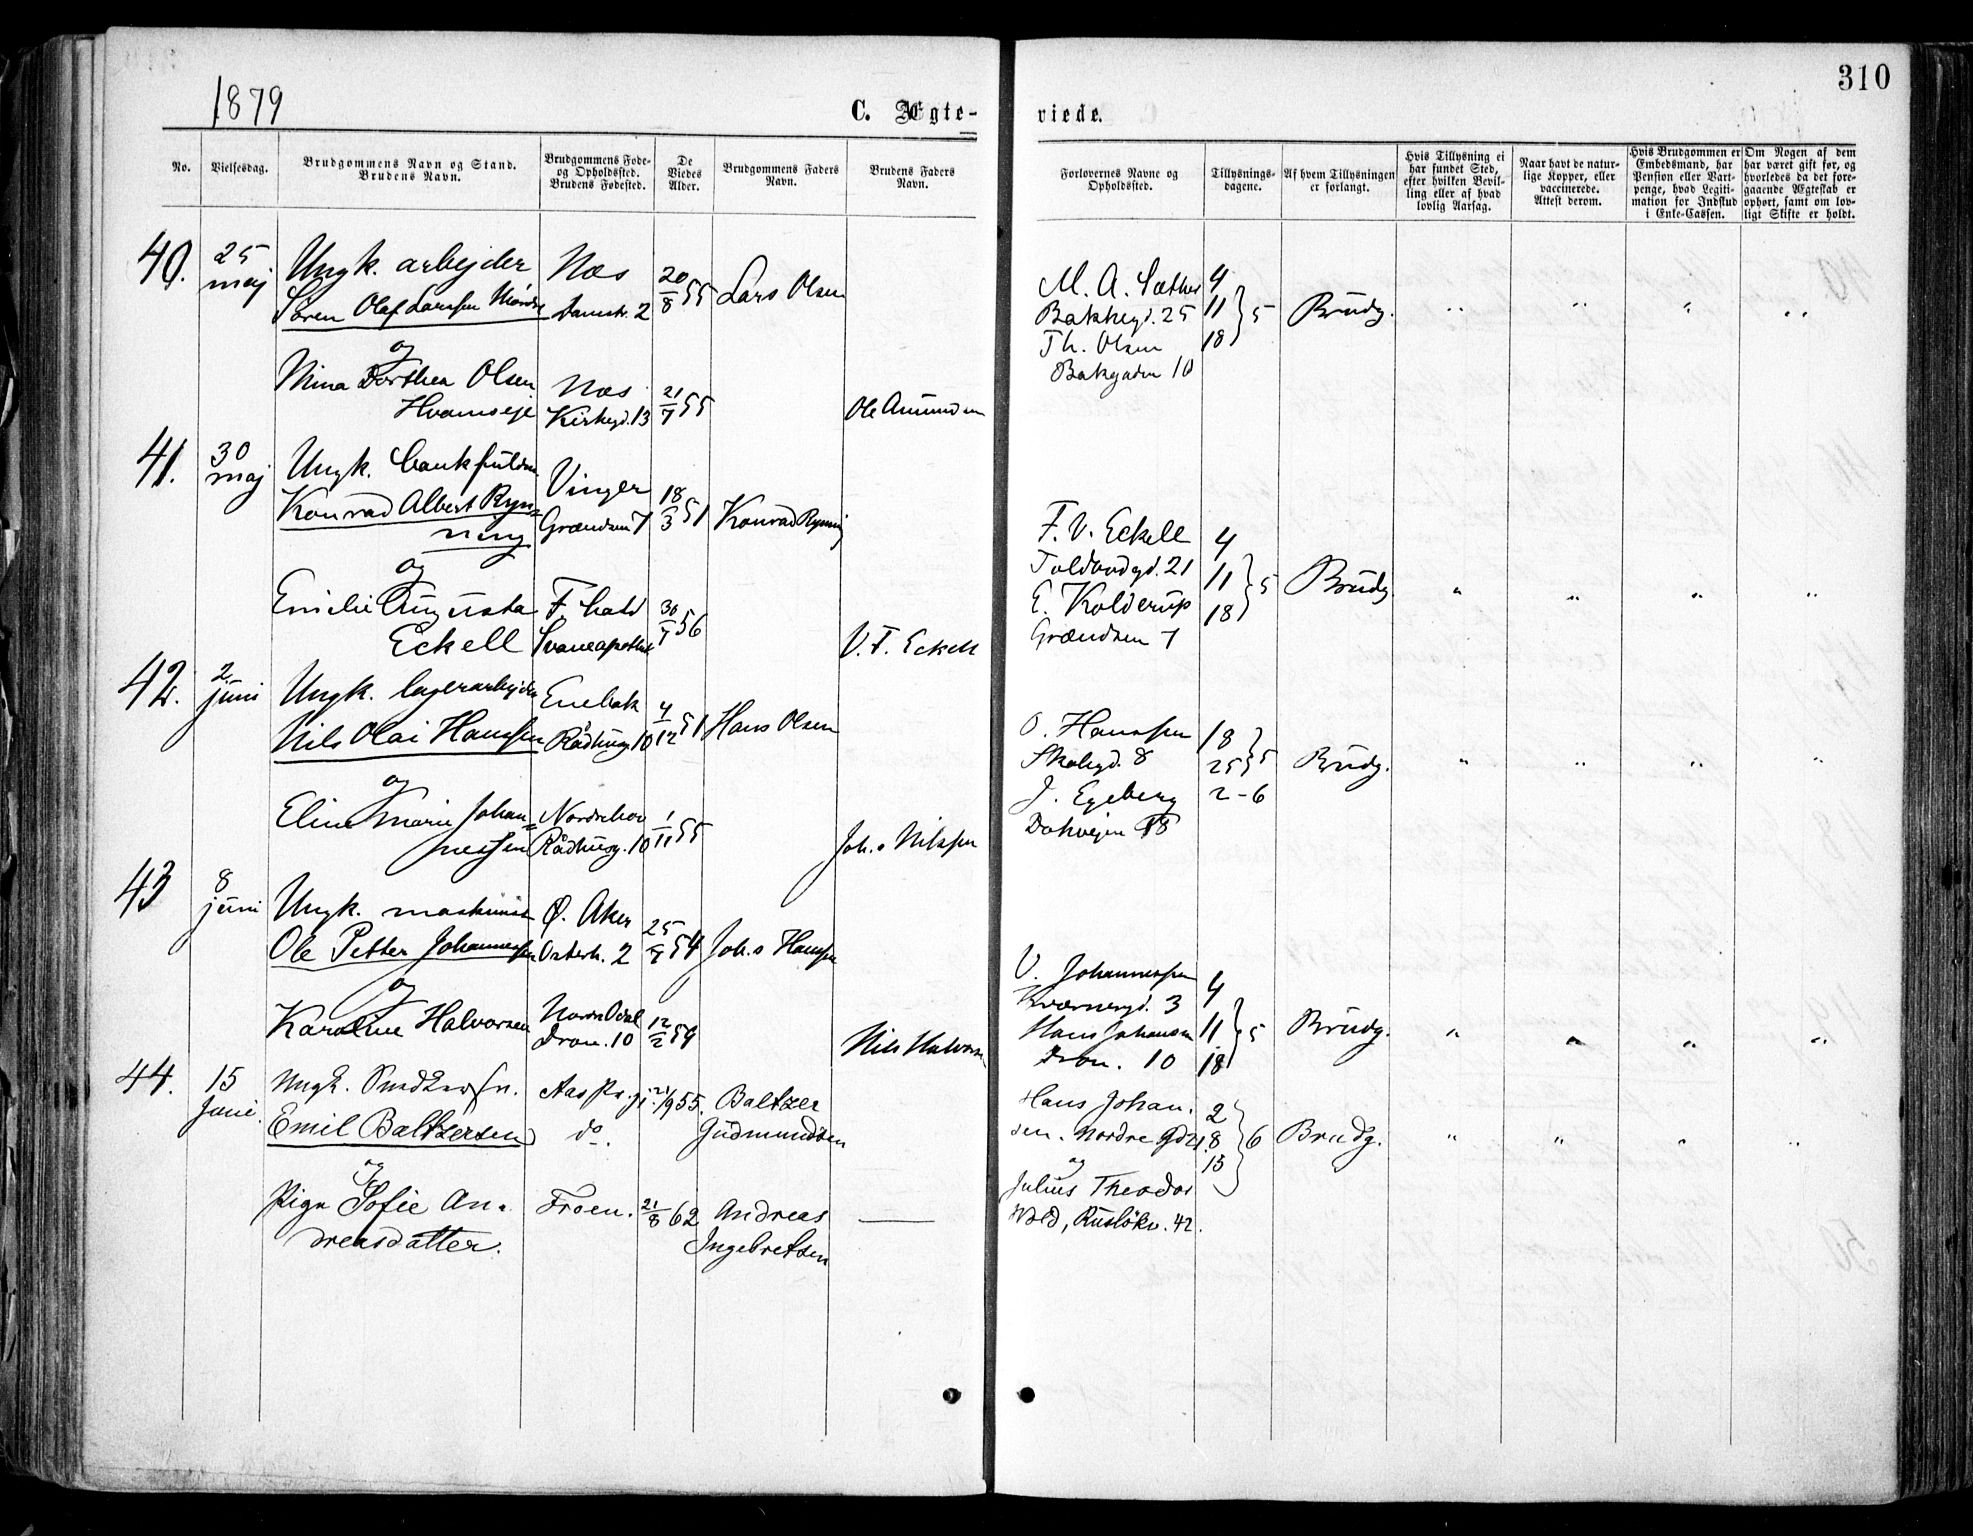 310
1879
C. Ægte-
viede.
No.
Vielsesdag.
Brudgommens Navn og Stand.
Brudens Navn.
Brudgommens Føde-
og Opholdssted.
Brudens Fødested.
De
Viedes
Alder.
Brudgommens Faders
Navn.
Brudens Faders
Navn.
Forlovernes Navne og
Opholdssted.
Tillysnings-
dagene.
Af hvem Tillysningen
er forlangt.
Hvis Tillysning ei
har fundet Sted,
efter hvilken Bevil-
ling eller af hvad
lovlig Aarsag.
Naar havt de natur-
lige Kopper, eller
vaccinerede.
Attest derom.
Hvis Brudgommen er
Embedsmand, har
Pension eller Vart-
penge, hvad Legiti-
mation for Indskud
i Enke-Cassen.
Om Nogen af dem
har været gift før, og
hvorledes da det fore-
gaaende Ægteskab er
ophørt, samt om lov-
ligt Skifte er holdt.
40.
25
maj
Ungk. arbejder
Søren Olaf Larssen
og
Mina Dorthea Olsen
Hvamseje
Næs
Damstr. 2
Næs
Kirkegd. 13
20/8 55
21/7 55
Lars Olsen
Ole Amundsen
M. A. Sæther
Bakkegd. 25
Th. Olsen
Bakgaden 10
4
11 } 5
18
Brudg.
" " " "
41.
30
maj
Ungk. bankfuldm
Konrad Albert Ryn=
ning
og
Emilie Augusta
Eckell
Vinger
Grændsen 7
F. hald
Svaneapothek
18/3 51
30/7 56
Konrad Rynning
V. F. Eckell
F. V. Eckell
Toldbodgd. 21
E. Kolderup
Grændsen 7
4
11 } 5
18
Brudg.
" " " "
42.
2
juni
Ungk. lagerarbejder
Nils Olai Hanssen
og
Eline Marie Johan=
nessen
Enebak
Rådhusg. 10
Nordrehov
Rådhusg. 10
4/12 51
1/11 55
Hans Olsen
Joh.s Nilssen
O. Hanssen
Skolegd. 8
J. Egeberg
Dokvejen 18
18 }
25 } 5
2-6
Brudg.
" " " "
43
8
juni
Ungk. maskinist
Ole Petter Johannessen
og
Karoline Halvorsen
Ø. Aker
Osterh. 2
Nordre Odal
Dron. 10
25/7 54
12/2 59
Joh.s Hanssen
Nils Halvorsen
V. Johannessen
Kværnergd. 3
Hans Johansen
Dron. 10
4
11 } 5
18
Brudg.
" " " "
44.
15
Juni.
Ungk. Smedsv.
Emil Baltzersen
og
Pige Sofie An-
dreasdatter.
Aas Pr.gj.
do.
Froen.
21/9 55.
21/8 62
Baltzer
Gudmundsen
Andreas
Ingebretsen
Hans Johan.
sen. Nordre Gd 21.
og
Julius Theodor
Wold, Ruseløkv. 42.
2
8 } 6
15
Brudg.
" " " "